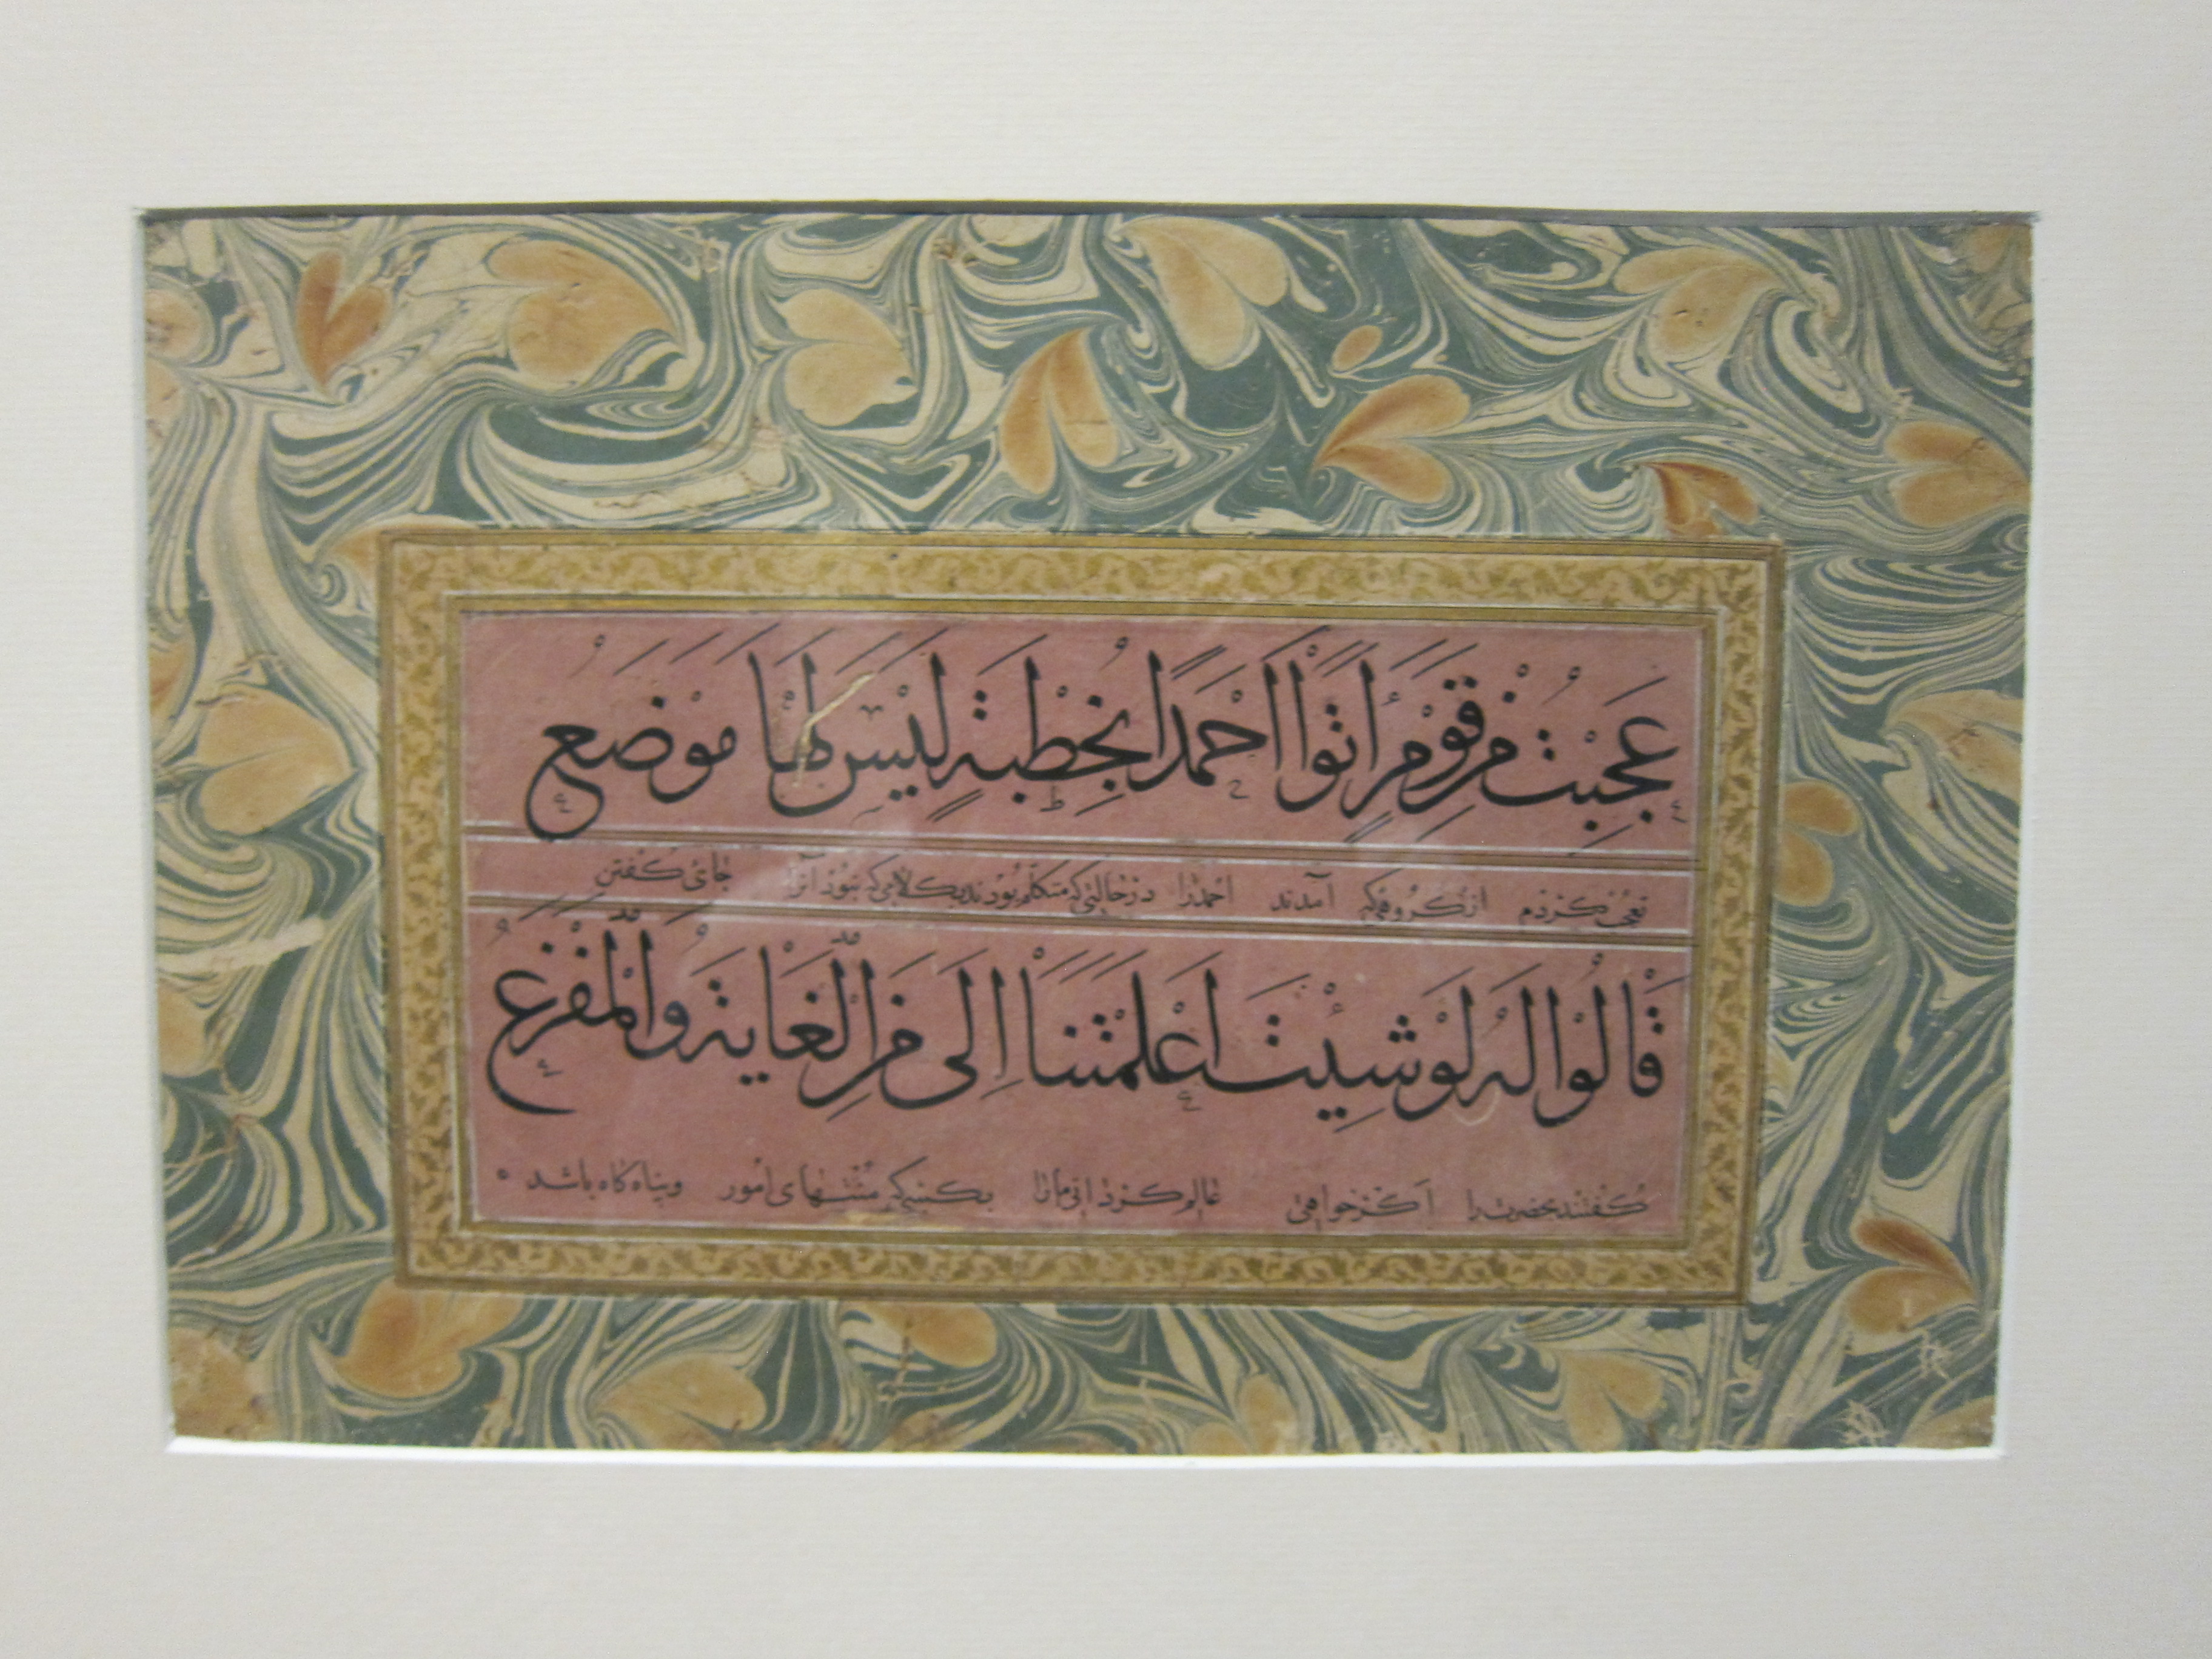 عَجِبْتُ مِنْ قَوْمٍ أَتَوْا أَحْمَدًا بِخُطْبَةٍ لَيْسَ لَهَا مَوْضَعُ
تعجب کردم از گروهی که آمدند احمد را در حالتی که متکلم بودند بکلامی که نبود آنرا جای گفتن
قَالُوا لَهُ لَوْ شِئْتَ أَعْلَمْتَنَا إِلَى مَنِ الْغَايَةُ وَالْمَفْزَعُ
گفتند حضرت را اگر خواهی عالم گردانی ما را بکسی که منتهای امور و پناه گاه باشد